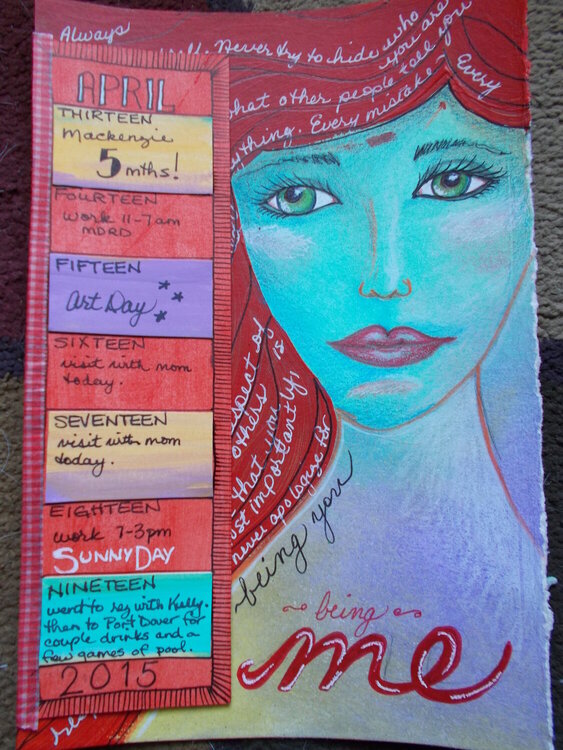 APRIL
THIRTEEN
Mackenzie
5 mths!
FOURTEEN
work 11-7am
MDRD
FIFTEEN
Art Day
SIXTEEN
visit with mom
today.
SEVENTEEN
visit with mom
today.
EIGHTEEN
work 7-3pm
SUNNY DAY
NINETEEN
went to reg with Kelly.
then to Port Dover for
couple drinks and a
few games of pool.
2015
Always
Never try to hide who
you are
what other people tell you
Every
Every mistake
others is
that you
importantly,
never apologize for
being you
being
me